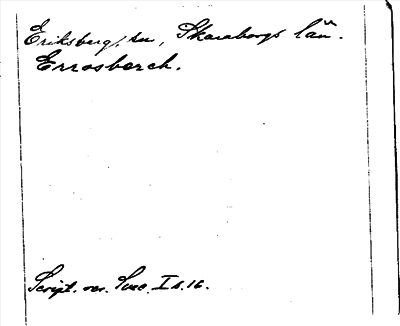 Eriksberg, sn, Skaraborgs län.
Errosberch.
Script. rer. Suec. I s. 16.